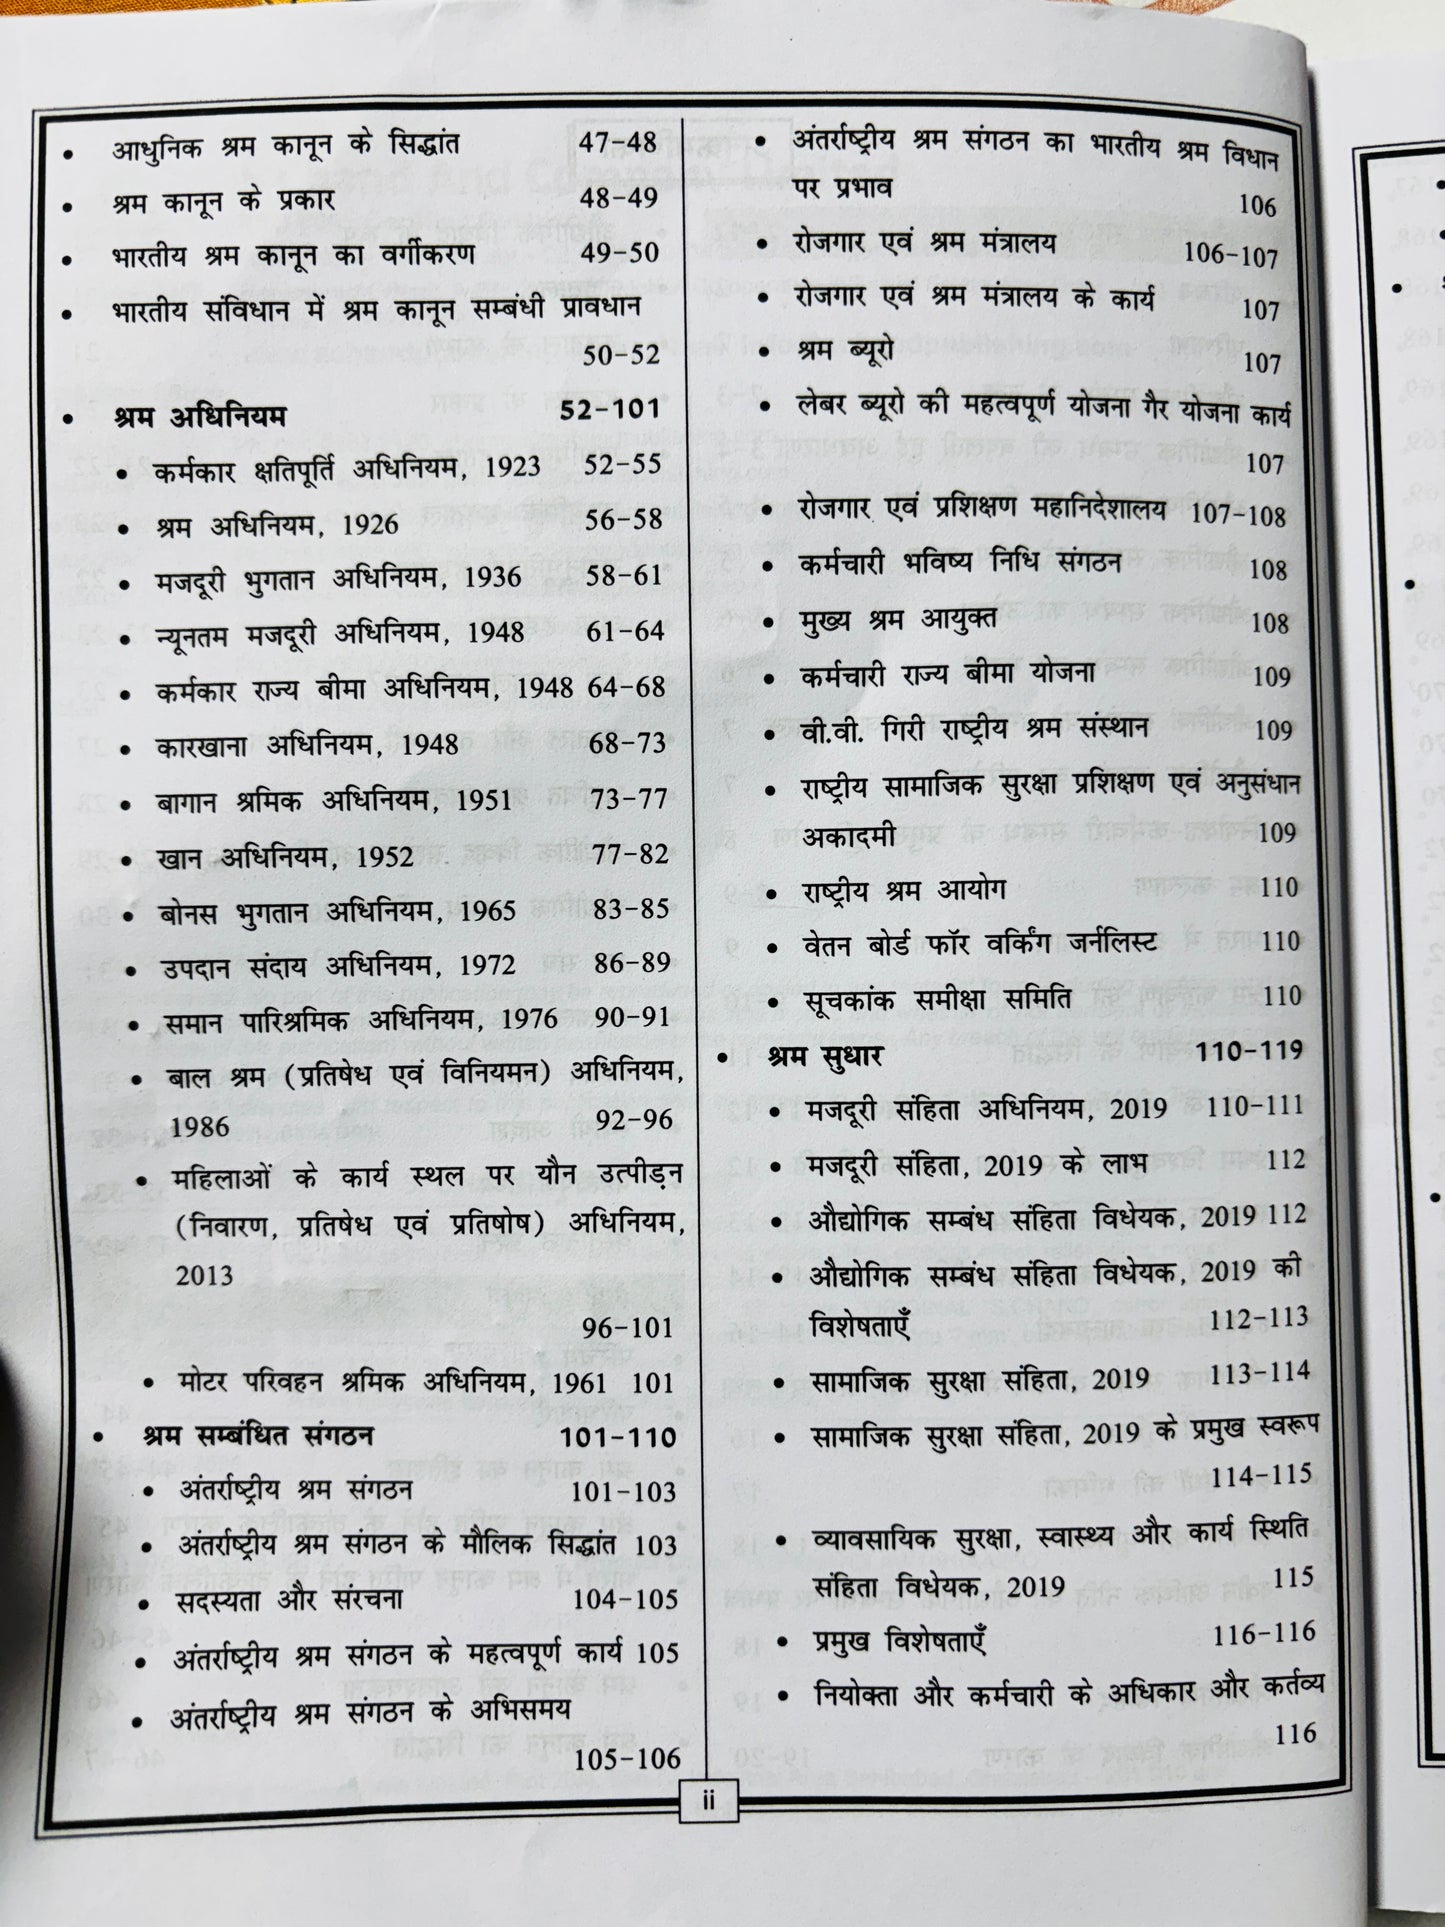 • आधुनिक श्रम कानून के सिद्धांत 47-48
• श्रम कानून के प्रकार 48-49
• भारतीय श्रम कानून का वर्गीकरण 49-50
• भारतीय संविधान में श्रम कानून सम्बंधी प्रावधान
50-52
• श्रम अधिनियम 52-101
• कर्मकार क्षतिपूर्ति अधिनियम, 1923 52-55
• श्रम अधिनियम, 1926 56-58
• मजदूरी भुगतान अधिनियम, 1936 58-61
• न्यूनतम मजदूरी अधिनियम, 1948 61-64
• कर्मकार राज्य बीमा अधिनियम, 1948 64-68
• कारखाना अधिनियम, 1948 68-73
• बागान श्रमिक अधिनियम, 1951 73-77
• खान अधिनियम, 1952 77-82
• बोनस भुगतान अधिनियम, 1965 83-85
• उपदान संदाय अधिनियम, 1972 86-89
• समान पारिश्रमिक अधिनियम, 1976 90-91
• बाल श्रम (प्रतिषेध एवं विनियमन) अधिनियम,
1986 92-96
• महिलाओं के कार्य स्थल पर यौन उत्पीड़न
(निवारण, प्रतिषेध एवं प्रतिषोष) अधिनियम,
2013
96-101
• मोटर परिवहन श्रमिक अधिनियम, 1961 101
• श्रम सम्बंधित संगठन 101-110
• अंतर्राष्ट्रीय श्रम संगठन 101-103
• अंतर्राष्ट्रीय श्रम संगठन के मौलिक सिद्धांत 103
• सदस्यता और संरचना 104-105
• अंतर्राष्ट्रीय श्रम संगठन के महत्वपूर्ण कार्य 105
• अंतर्राष्ट्रीय श्रम संगठन के अभिसमय
105-106
• अंतर्राष्ट्रीय श्रम संगठन का भारतीय श्रम विधान
पर प्रभाव 106
• रोजगार एवं श्रम मंत्रालय 106-107
• रोजगार एवं श्रम मंत्रालय के कार्य 107
• श्रम ब्यूरो 107
• लेबर ब्यूरो की महत्वपूर्ण योजना गैर योजना कार्य
107
• रोजगार एवं प्रशिक्षण महानिदेशालय 107-108
• कर्मचारी भविष्य निधि संगठन 108
• मुख्य श्रम आयुक्त 108
• कर्मचारी राज्य बीमा योजना 109
• वी.वी. गिरी राष्ट्रीय श्रम संस्थान 109
• राष्ट्रीय सामाजिक सुरक्षा प्रशिक्षण एवं अनुसंधान
अकादमी 109
• राष्ट्रीय श्रम आयोग 110
• वेतन बोर्ड फॉर वर्किंग जर्नलिस्ट 110
• सूचकांक समीक्षा समिति 110
• श्रम सुधार 110-119
• मजदूरी संहिता अधिनियम, 2019 110-111
• मजदूरी संहिता, 2019 के लाभ 112
• औद्योगिक सम्बंध संहिता विधेयक, 2019 112
• औद्योगिक सम्बंध संहिता विधेयक, 2019 की
विशेषताएँ 112-113
• सामाजिक सुरक्षा संहिता, 2019 113-114
• सामाजिक सुरक्षा संहिता, 2019 के प्रमुख स्वरूप
114-115
• व्यावसायिक सुरक्षा, स्वास्थ्य और कार्य स्थिति
संहिता विधेयक, 2019 115
• प्रमुख विशेषताएँ 116-116
• नियोक्ता और कर्मचारी के अधिकार और कर्तव्य
116
ii